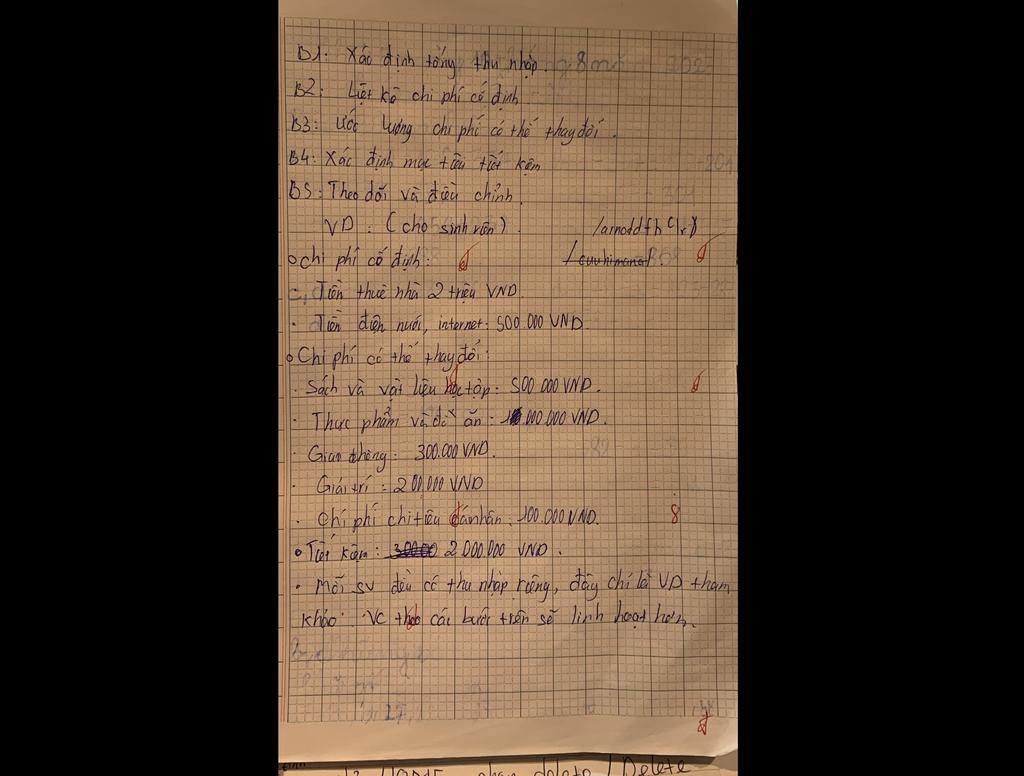 B1: Xác định tổng thu nhập.
B2: Liệt kê chi phí cố định
B3: Ước lượng chi phí có thể thay đổi.
B4: Xác định mục tiêu tiết kiệm
B5: Theo dõi và điều chỉnh.
VD: (cho sinh viên).
o chi phí cố định:
- Tiền thuê nhà 2 triệu VND.
· Tiền điện nước, internet: 500.000 VND.
o Chi phí có thể thay đổi:
· Sách và vật liệu học tập: 500.000 VND.
· Thực phẩm và đồ ăn: 1.000.000 VND.
· Giao thông: 300.000 VND.
· Giải trí: 200.000 VND
· Chi phí chi tiêu cá nhân: 100.000 VND.
8
• Tiết kiệm: 2.000.000 VND.
• Mỗi sv đều có thu nhập riêng, đây chỉ là VD tham
khảo. VC theo các bước trên sẽ linh hoạt hơn.
delete / Delete